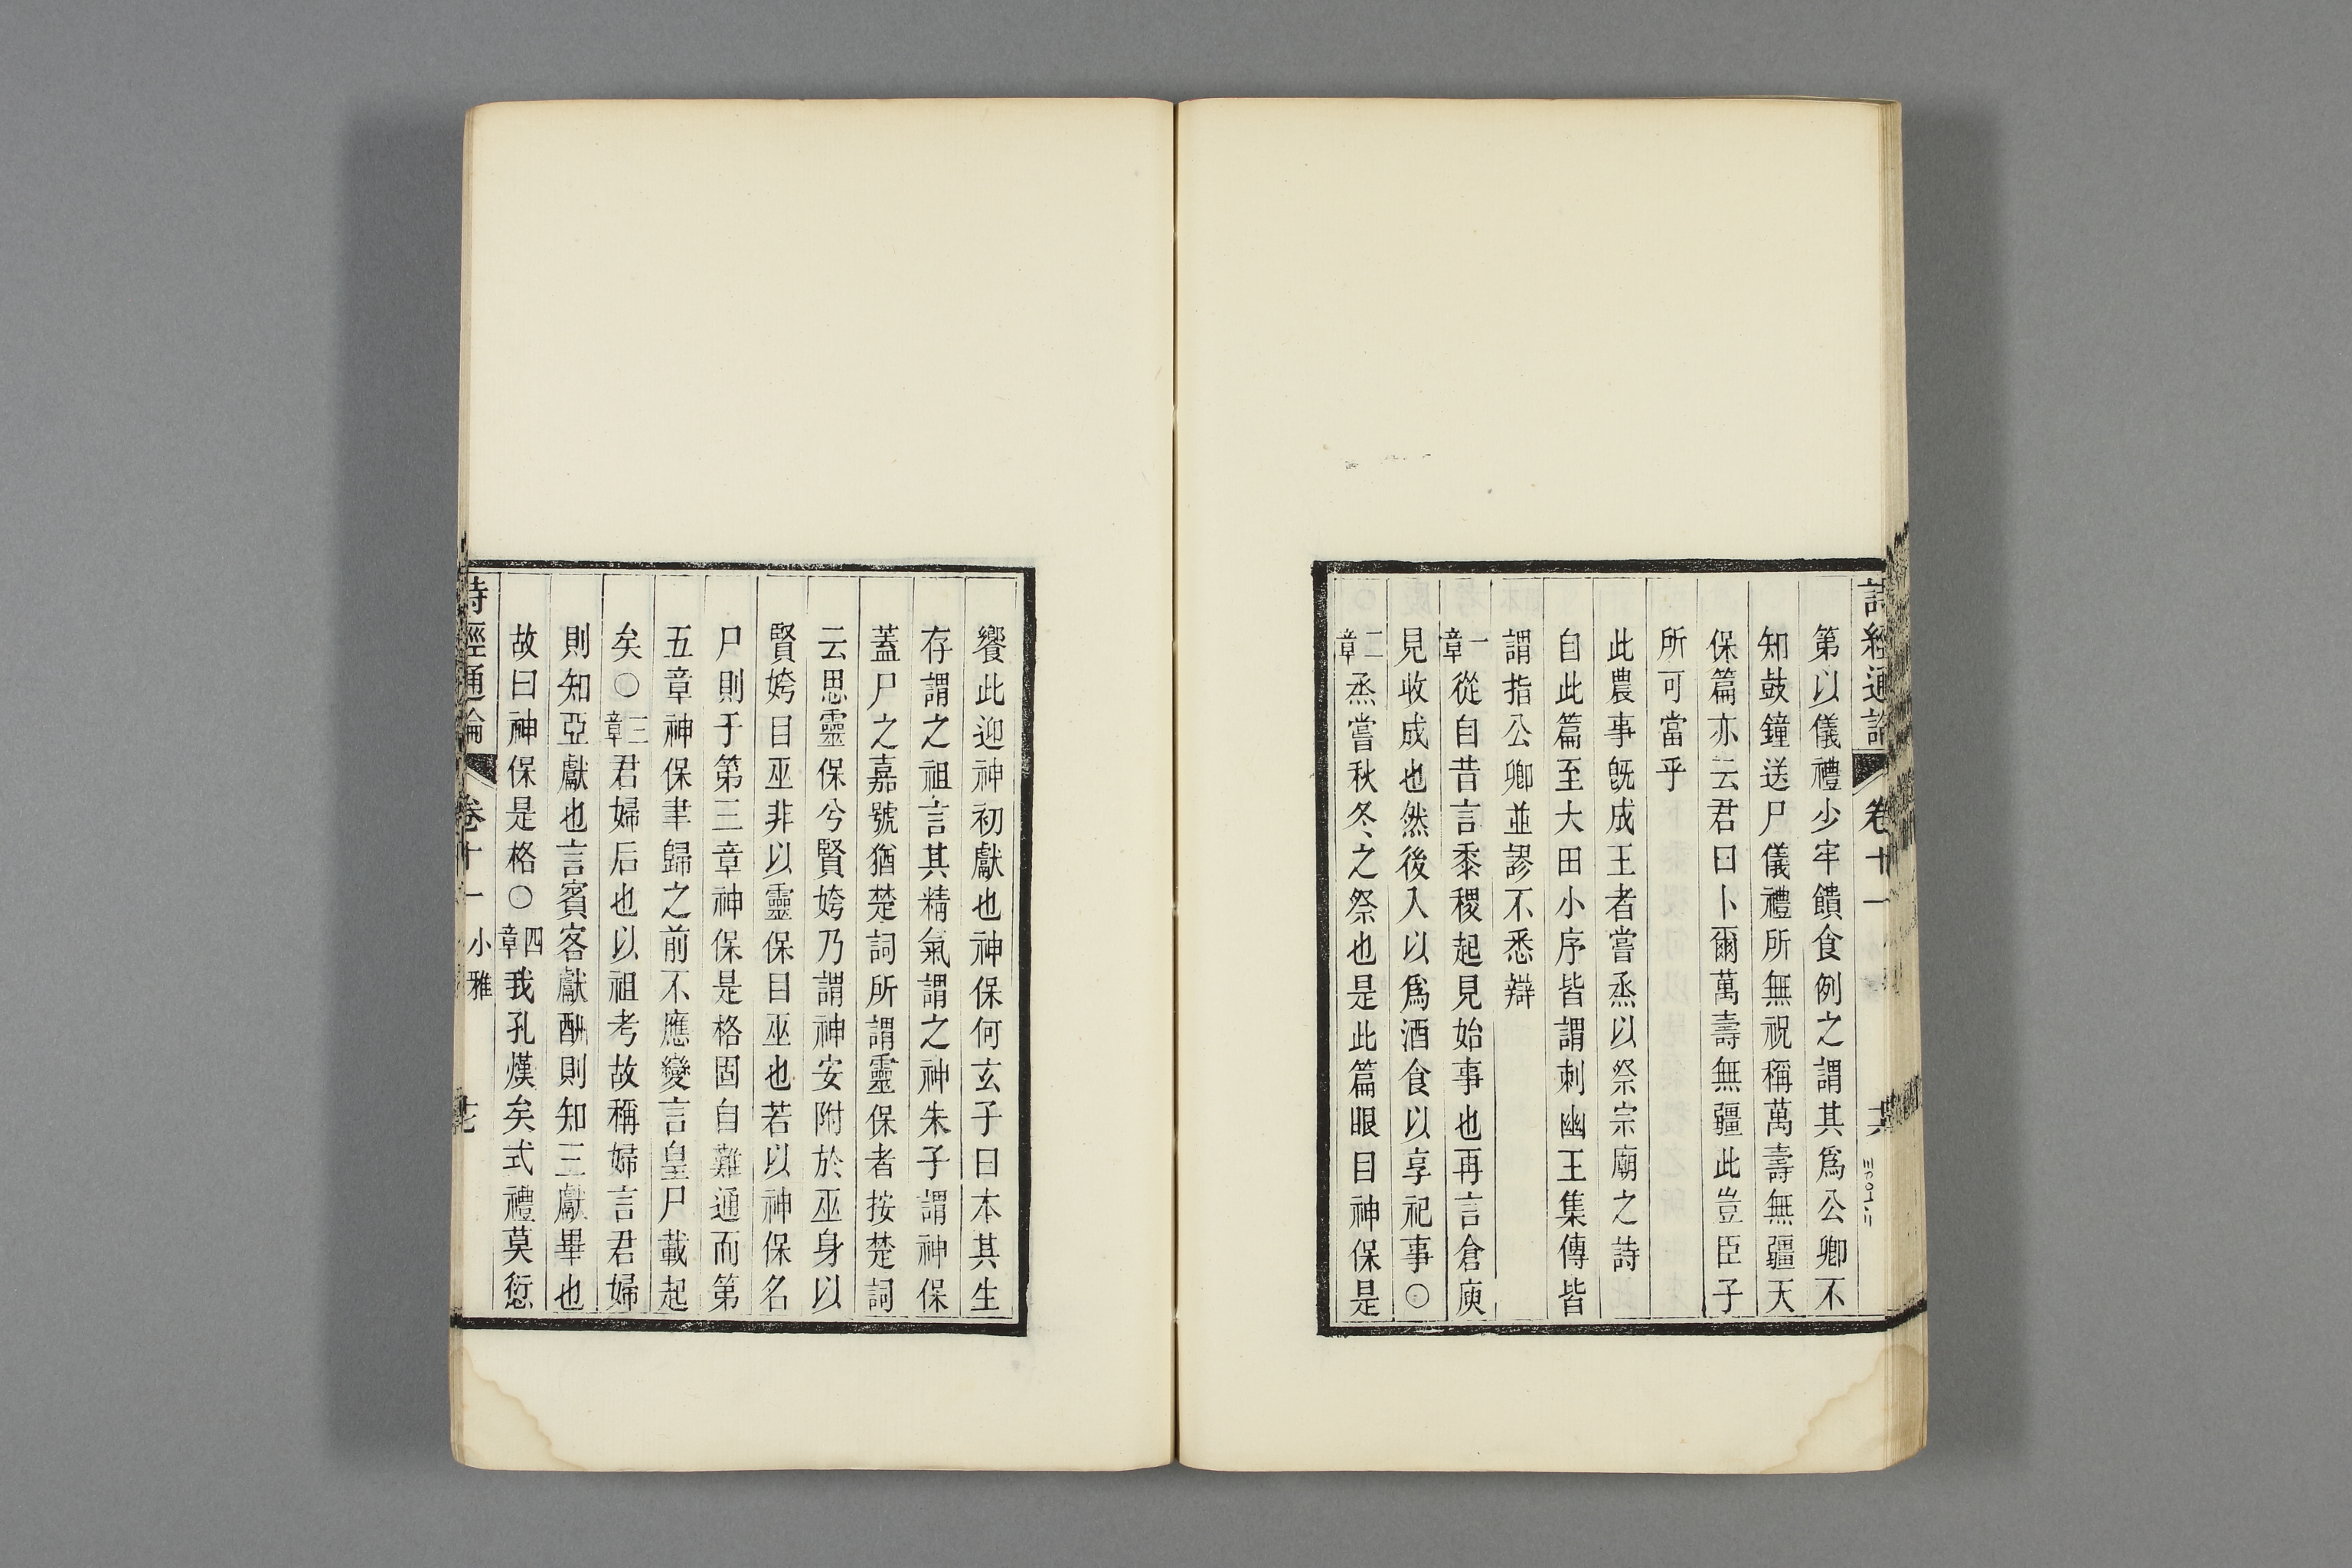 詩經通論 卷十一 十六
第以儀禮少牢饋食例之謂其爲公卿不
知鼓鐘送尸儀禮所無祝稱萬壽無疆天
保篇亦云君曰卜爾萬壽無疆此豈臣子
所可當乎
此農事旣成王者嘗烝以祭宗廟之詩
自此篇至大田小序皆謂刺幽王集傳皆
謂指公卿並謬不悉辯
一章從自昔言黍稷起見始事也再言倉庾
見收成也然後入以爲酒食以享祀事〇
二章烝嘗秋冬之祭也是此篇眼目神保是
饗此迎神初獻也神保何玄子曰本其生
存謂之祖言其精氣謂之神朱子謂神保
蓋尸之嘉號猶楚詞所謂靈保者按楚詞
云思靈保兮賢姱乃謂神安附於巫身以
賢姱目巫非以靈保目巫也若以神保名
尸則于第三章神保是格固自難通而第
五章神保聿歸之前不應變言皇尸載起
矣〇三章君婦后也以祖考故稱婦言君婦
則知亞獻也言賓客獻酬則知三獻畢也
故曰神保是格〇四章我孔熯矣式禮莫愆
詩經通論 卷十一 小雅 十七